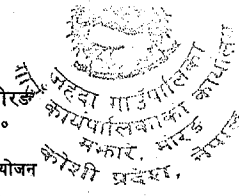 जहदा गाउँपालिका
गाउँ कार्यपालिकाको कार्यालय
मझारे, मोरङ
कोशी प्रदेश, नेपाल
योजन